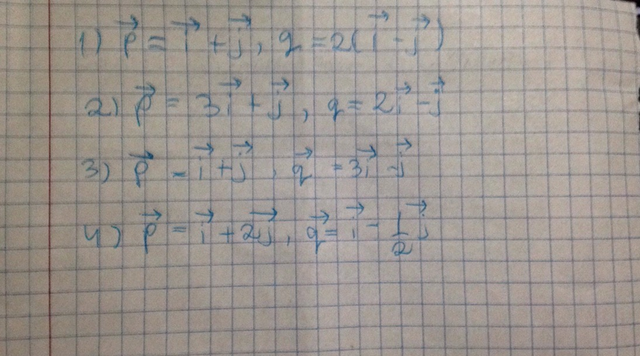 1) p⃗ = i⃗ + j⃗, q = 2(i⃗ - j⃗)
2) p⃗ = 3i⃗ + j⃗, q = 2i⃗ - j⃗
3) p⃗ = i⃗ + j⃗, q⃗ = 3i⃗ - j⃗
4) p⃗ = i⃗ + 2j⃗, q⃗ = i⃗ - 1/2 j⃗